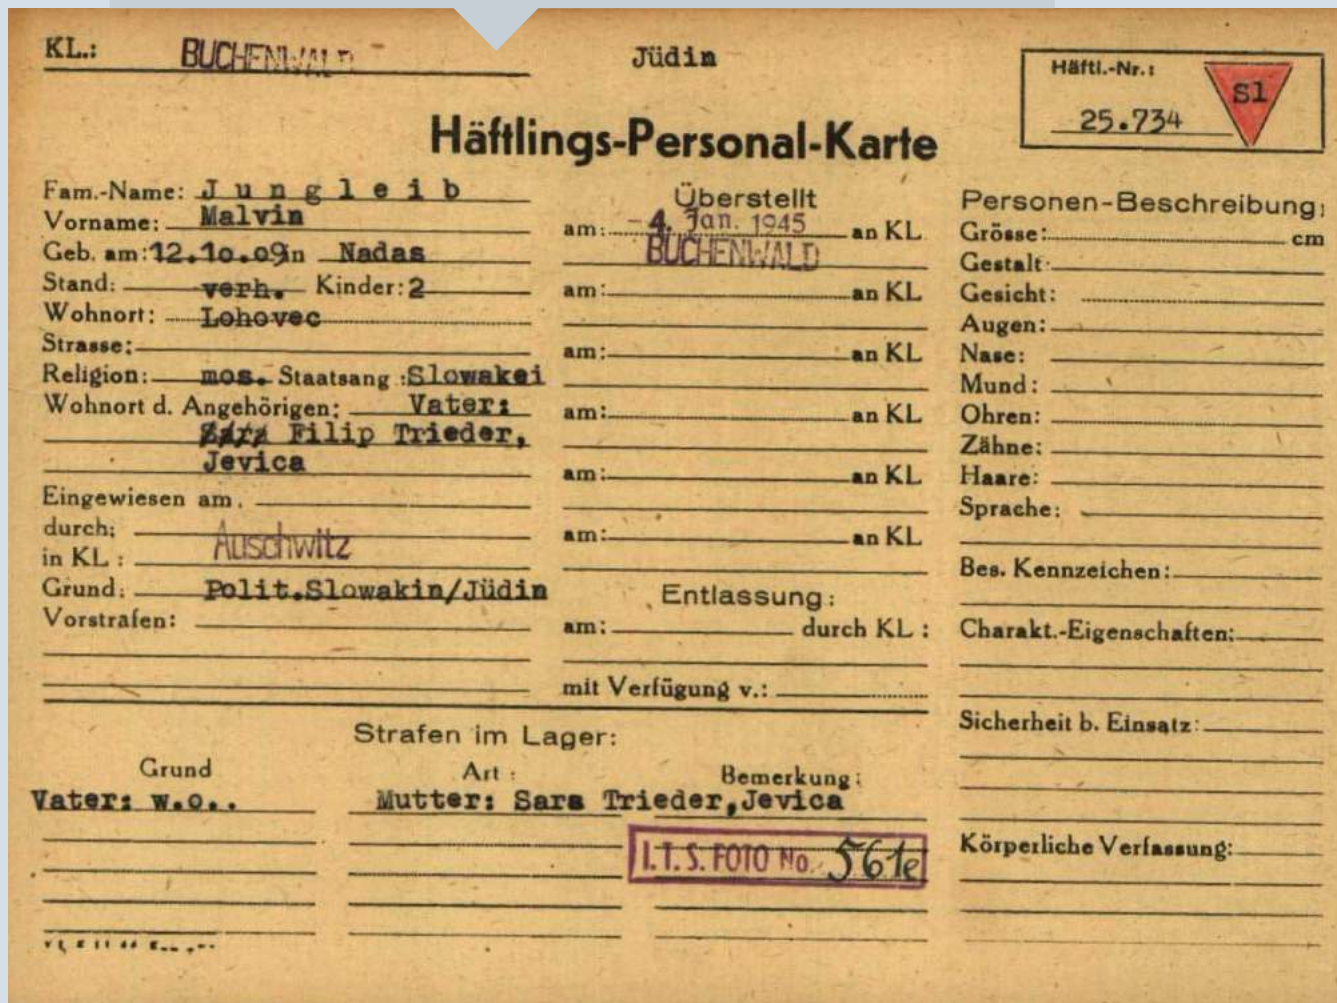 KL.: BUCHENWALD
Jüdin
Häftl.-Nr.:
25.734
Sl
Häftlings-Personal-Karte
Fam.-Name: J u n g l e i b
Vorname: Malvin
Geb. am: 12.10.09 in Nadas
Stand: verh. Kinder: 2
Wohnort: Lohovec
Strasse:
Religion: mos. Staatsang.: Slowakei
Wohnort d. Angehörigen: Vater:
Filip Trieder,
Jevica
Eingewiesen am.
durch:
in KL: Auschwitz
Grund: Polit.Slowakin/Jüdin
Vorstrafen:
Überstellt
am: - 4. Jan. 1945 an KL
BUCHENWALD
am: an KL
am: an KL
am: an KL
am: an KL
am: an KL
Entlassung:
am: durch KL:
mit Verfügung v.:
Personen-Beschreibung:
Grösse: cm
Gestalt:
Gesicht:
Augen:
Nase:
Mund:
Ohren:
Zähne:
Haare:
Sprache:
Bes. Kennzeichen:
Charakt.-Eigenschaften:
Sicherheit b. Einsatz:
Körperliche Verfassung:
Strafen im Lager:
Grund Art: Bemerkung:
Vater: w.o.. Mutter: Sara Trieder,Jevica
I.T.S. FOTO No. 561e